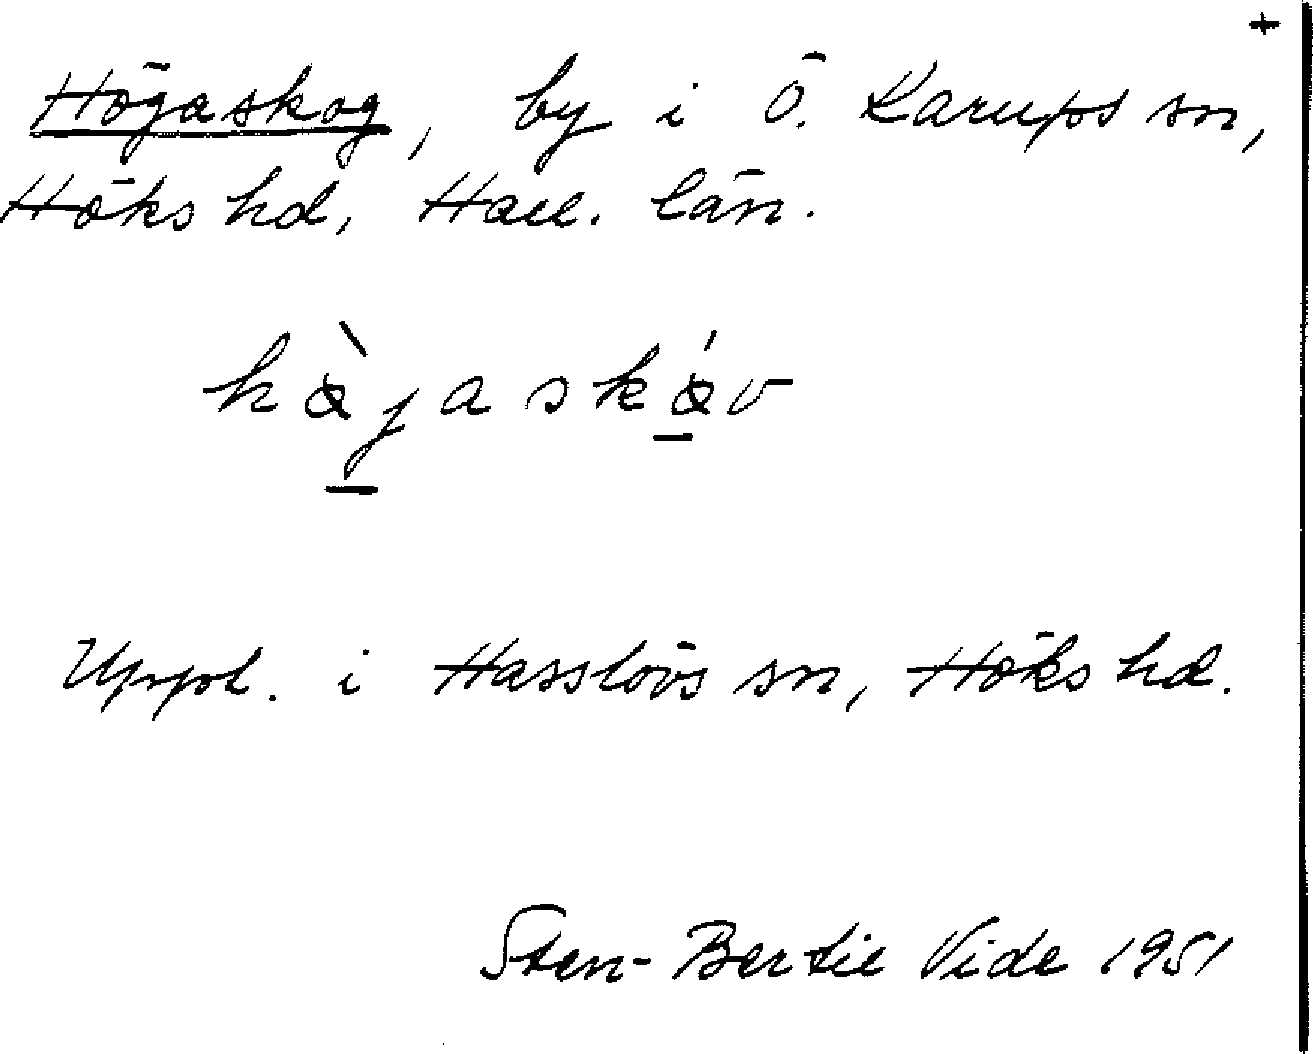 +
Högaskog, by i Ö. Karups sn,
Höks hd, Hall. län.
Uppt. i Hasslövs sn, Höks hd.
Sten-Bertil Vide 1951